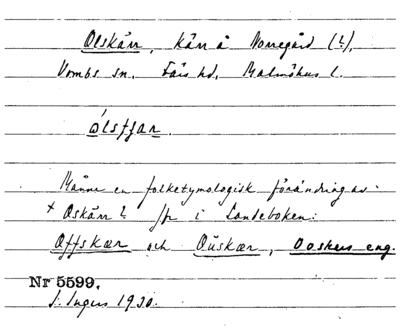 Olskärr, kärr å Norregård (?),
Vombs sn. Färs hd, Malmöhus l.
ólsfjar.
Månne en folketymologisk förändring av
+ Oskärr? Jfr i Landeboken:
Offskær och Oüskær, Ooskers eng.
Nr 5599.
S. Ingers 1930.